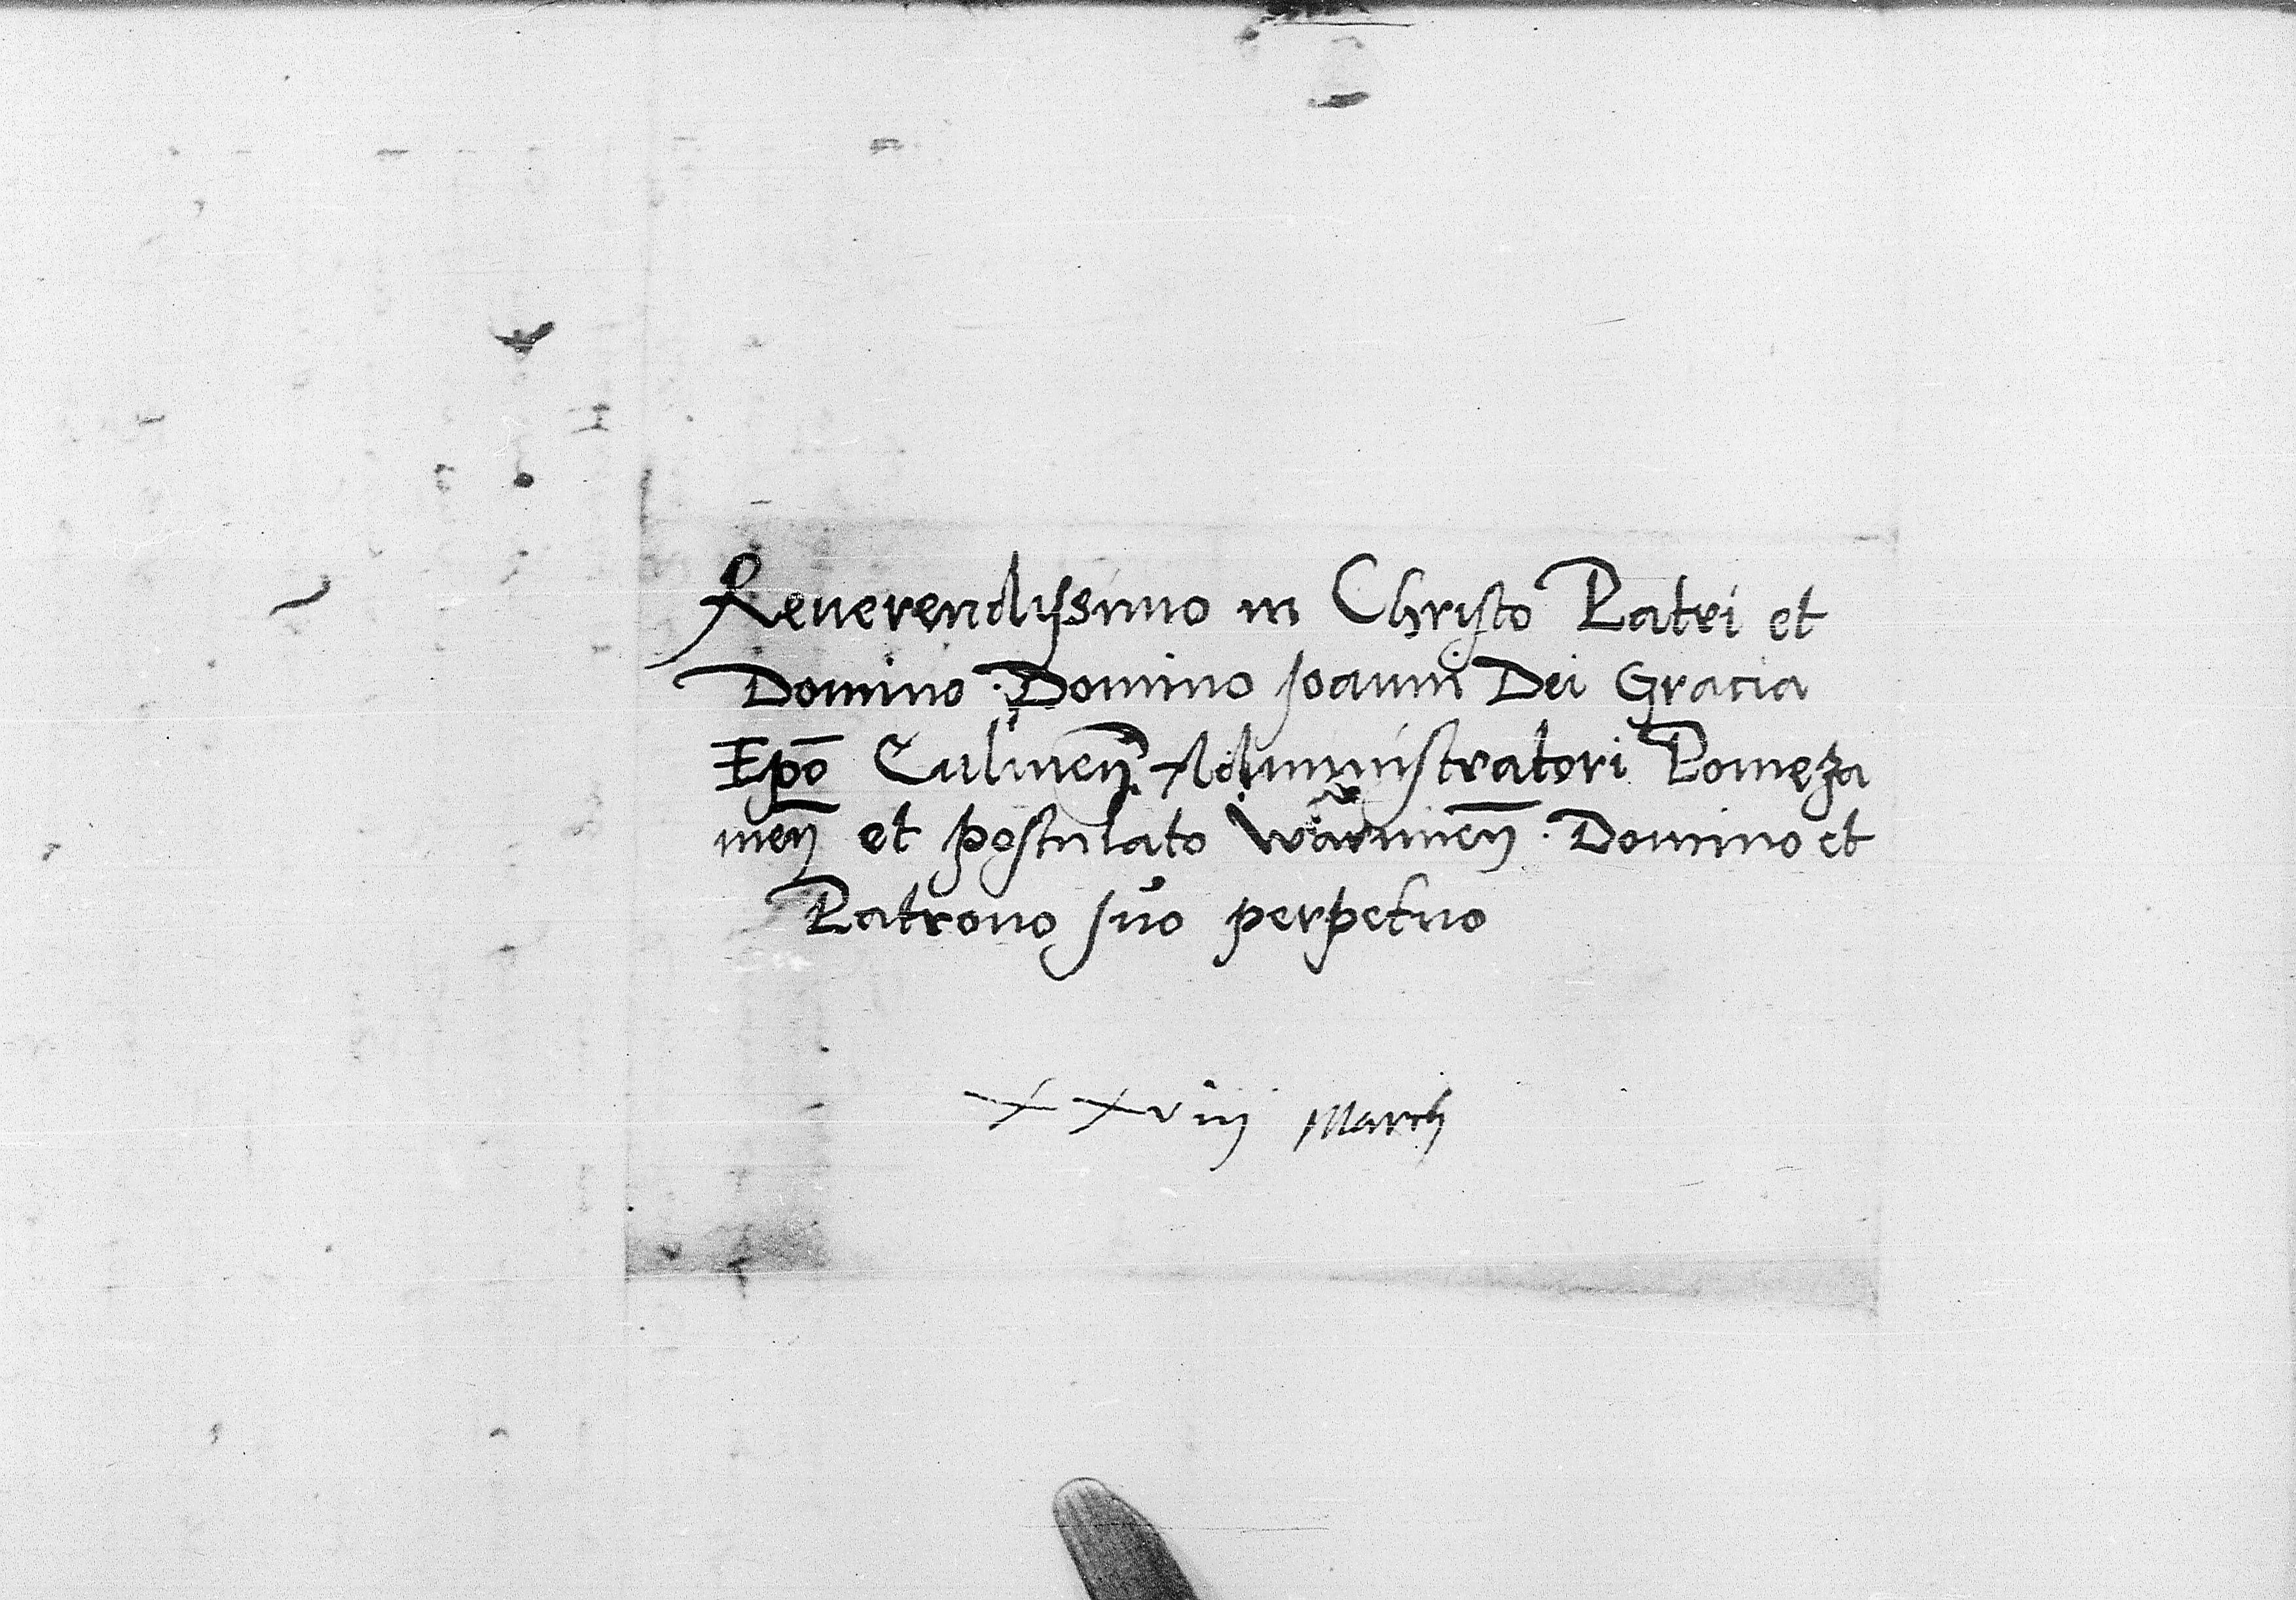 Reuerendissimo in Christo Patri et
Domino Domino Joanni Dei Gracia
Ep̄o Culmen̄. Administratori Pomeza
nien̄ et postulato Warmien̄. Domino et
Patrono suo perpetuo
xxviij Marcij